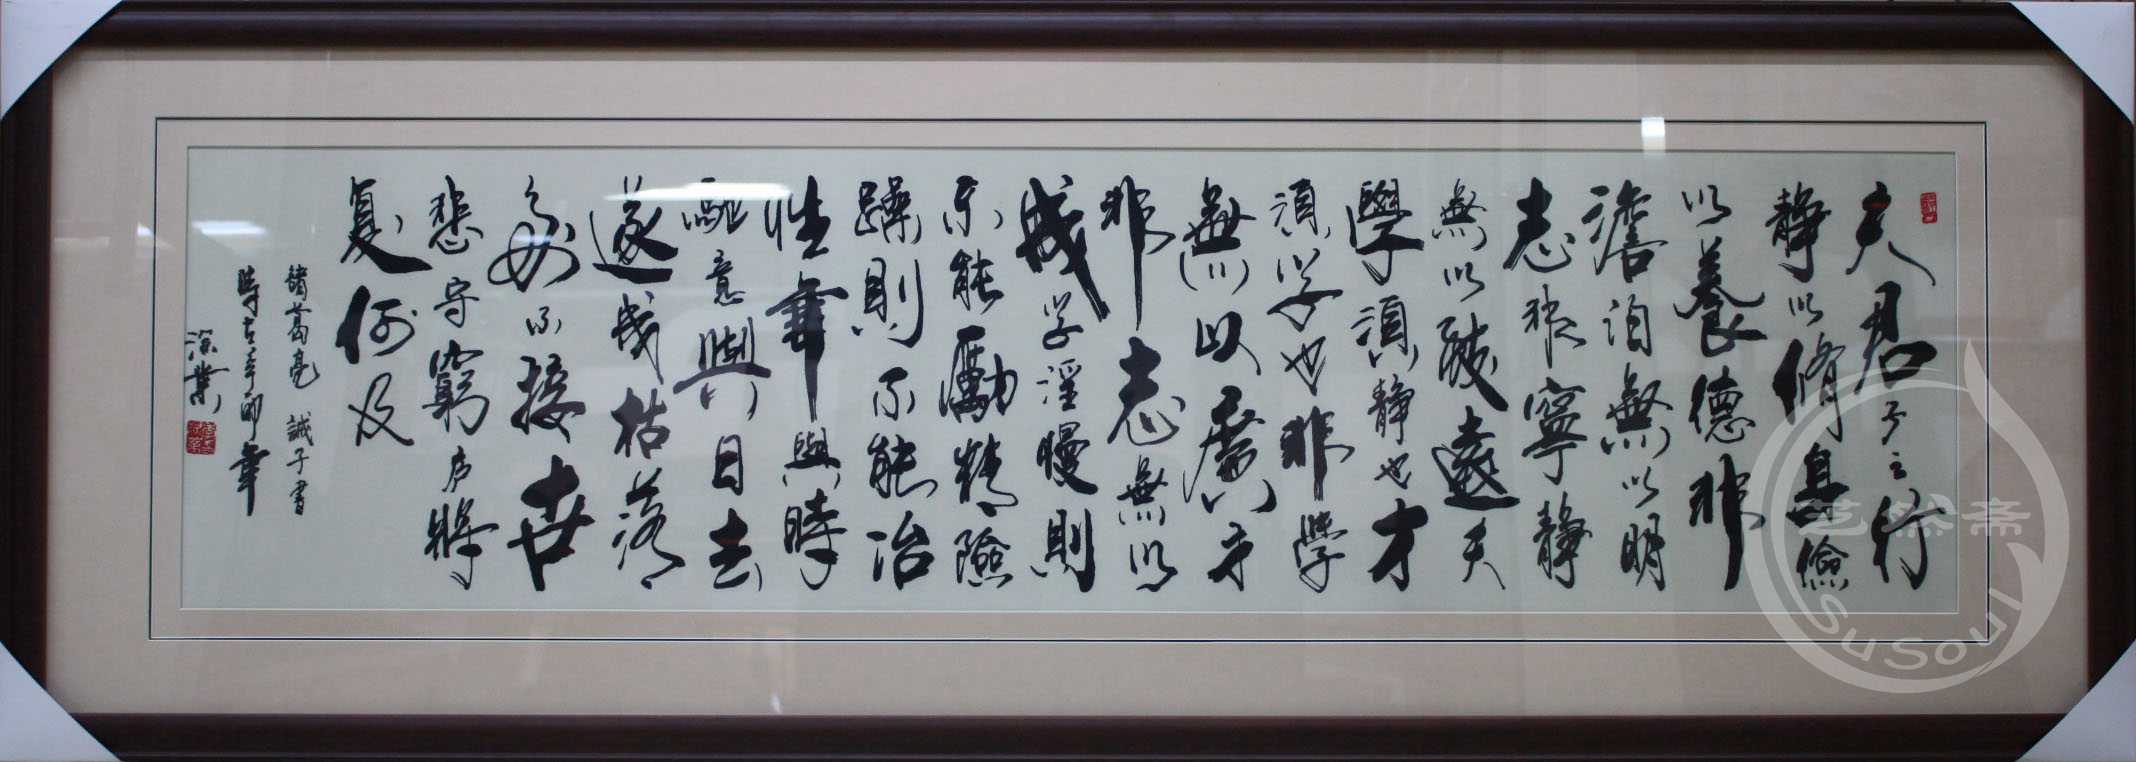 夫君子之行
静以脩身儉
以養德非
澹泊無以明
志非寧静
無以致遠夫
學須静也才
須學也非學
無以廣才
非志無以
成學淫慢則
不能勵精險
躁則不能冶
性年與時
馳意與日去
遂成枯落
多不接世
悲守窮庐將
復何及
諸葛亮 誡子書
SUSOUL